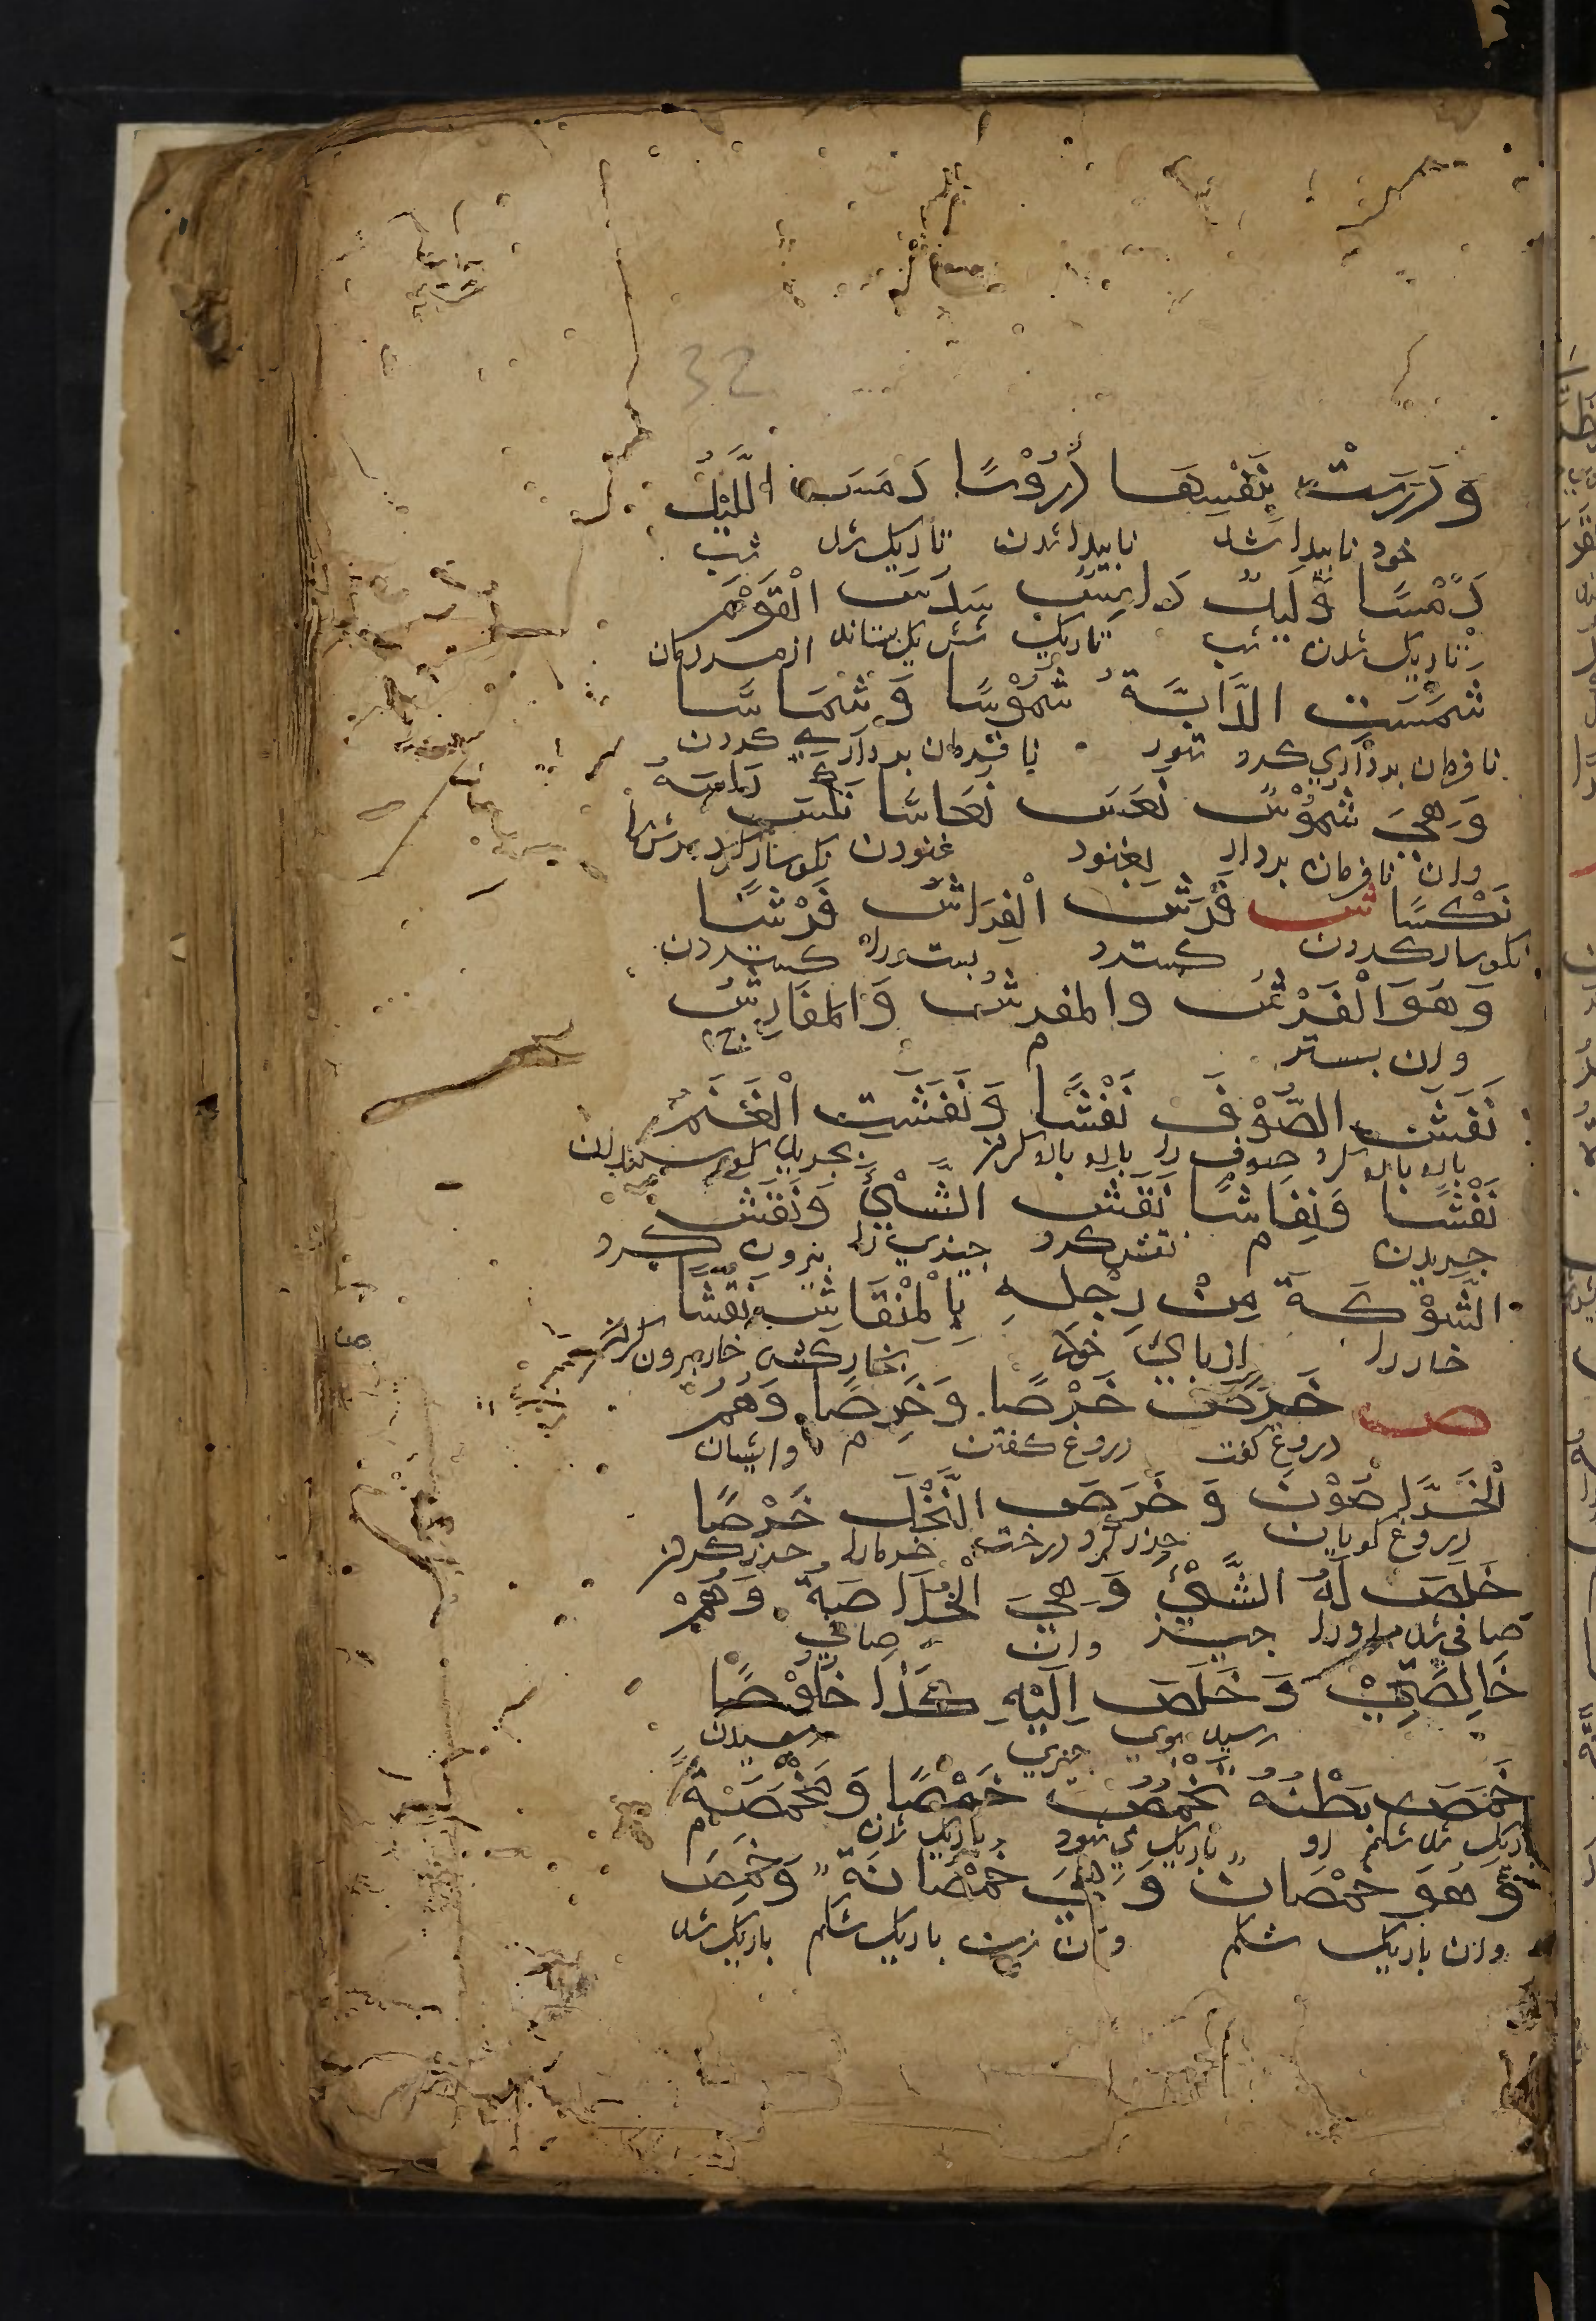 32
وَدَرَسَتْ بِنَفْسِهَا دُرُوْسًا دَمَسَ اللَّيْلُ
خود ناپیدا شد ناپیدا شدن تاریک شد شب
دَمْسًا وَلَيْلٌ دَامِسٌ سَدَسَ الْقَوْمَ
تاریک شدن شب تاریک شش یک ستاند از مردمان
شَمَسَتِ الدَّابَّةُ شُمُوْسًا وَشِمَاسًا
نا فرمان برداری کرد ستور نا فرمان برداری کردن
وَهِيَ شَمُوْسٌ نَعَسَ نُعَاسًا نَكَسَ رَاسَهُ
وان نا فرمان بردار بغنود غنودن نکوسار کرد سرش را
نَكْسًا ش فَرَشَ الْفِرَاشَ فَرْشًا
نکوسار کردن کسترد بستر را کستردن
وَهُوَ الْفَرْشُ والمفرش وَالمَفَارِشُ
وان بستر م ج
نَفَشَ الصُّوْفَ نَفْشًا وَنَفَشَتِ الْغَنَمُ
باره باره کرد صوف را باره باره کردن بچرید گوسفندان
نَفْشًا وَنِفَاشًا نَقَشَ الشَّيْئَ وَنَقَشَ
چریدن م نقش کرد چیزی را بیرون کرد
الشَّوْكَةَ مِنْ رِجْلِهِ بِالْمِنْقَاشِ نَقْشًا
خار را از پای خود بخار کش خار بیرون کردن
ص خَرَصَ خَرْصًا وَخَرِصًا وَهُمُ
دروغ کفت دروغ کفتن م وایشان
الْخَرَّاصُوْنَ وَخَرَصَ النَّخْلَ خَرْصًا
دروغ کویان حزر کرد درخت خرما را حزر کردن
خَلَصَ لَهُ الشَّيْئُ وَهِيَ الْخُلَاصَةُ وَهُمْ
صافی شد مر او را چیز وان صافی
خَالِصَتِيْ وَخَلَصَ اِلَيْهِ كَذَا خُلُوْصًا
رسید بوی چیزی رسیدن
خَمَصَ بَطْنُهُ يَخْمُصُ خَمْصًا وَمَخْمَصَةً
باریک شد شکم او باریک می شود باریک شدن م
وَهُوَ خَمْصَانُ وَهِيَ خَمْصَانَةٌ وَخَمِصَ
وان باریک شکم وان زن باریک شکم باریک شد